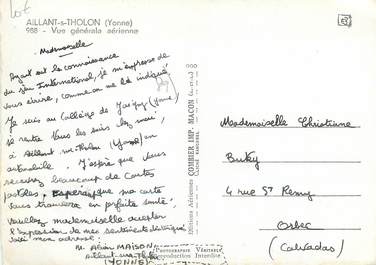 Lot
AILLANT-s-THOLON (Yonne)
988 - Vue générale aérienne
Mademoiselle
Ayant eu la connaissance
du Jeu International, je m'empresse de
vous écrire, comme on me l'a indiqué
Je suis au Collège de Joigny (Yonne)
je rentre tous les soirs chez moi,
à Aillant sur-Tholon (Yonne) en
automobile. J'espère que vous
recevrez beaucoup de cartes
postales. Espérant que ma carte
vous trouvera en parfaite santé,
Veuillez mademoiselle accepter
l'expression de mes sentiments
Voici mon adresse:
M. MAISON
Aillant-sur-Tholon
(YONNE)
Editions Aériennes COMBIER IMP. MACON
Photographie Véritable
Reproduction Interdite
Mademoiselle Christiane
Buky
4 rue St Remy
Orbec
(Calvados)